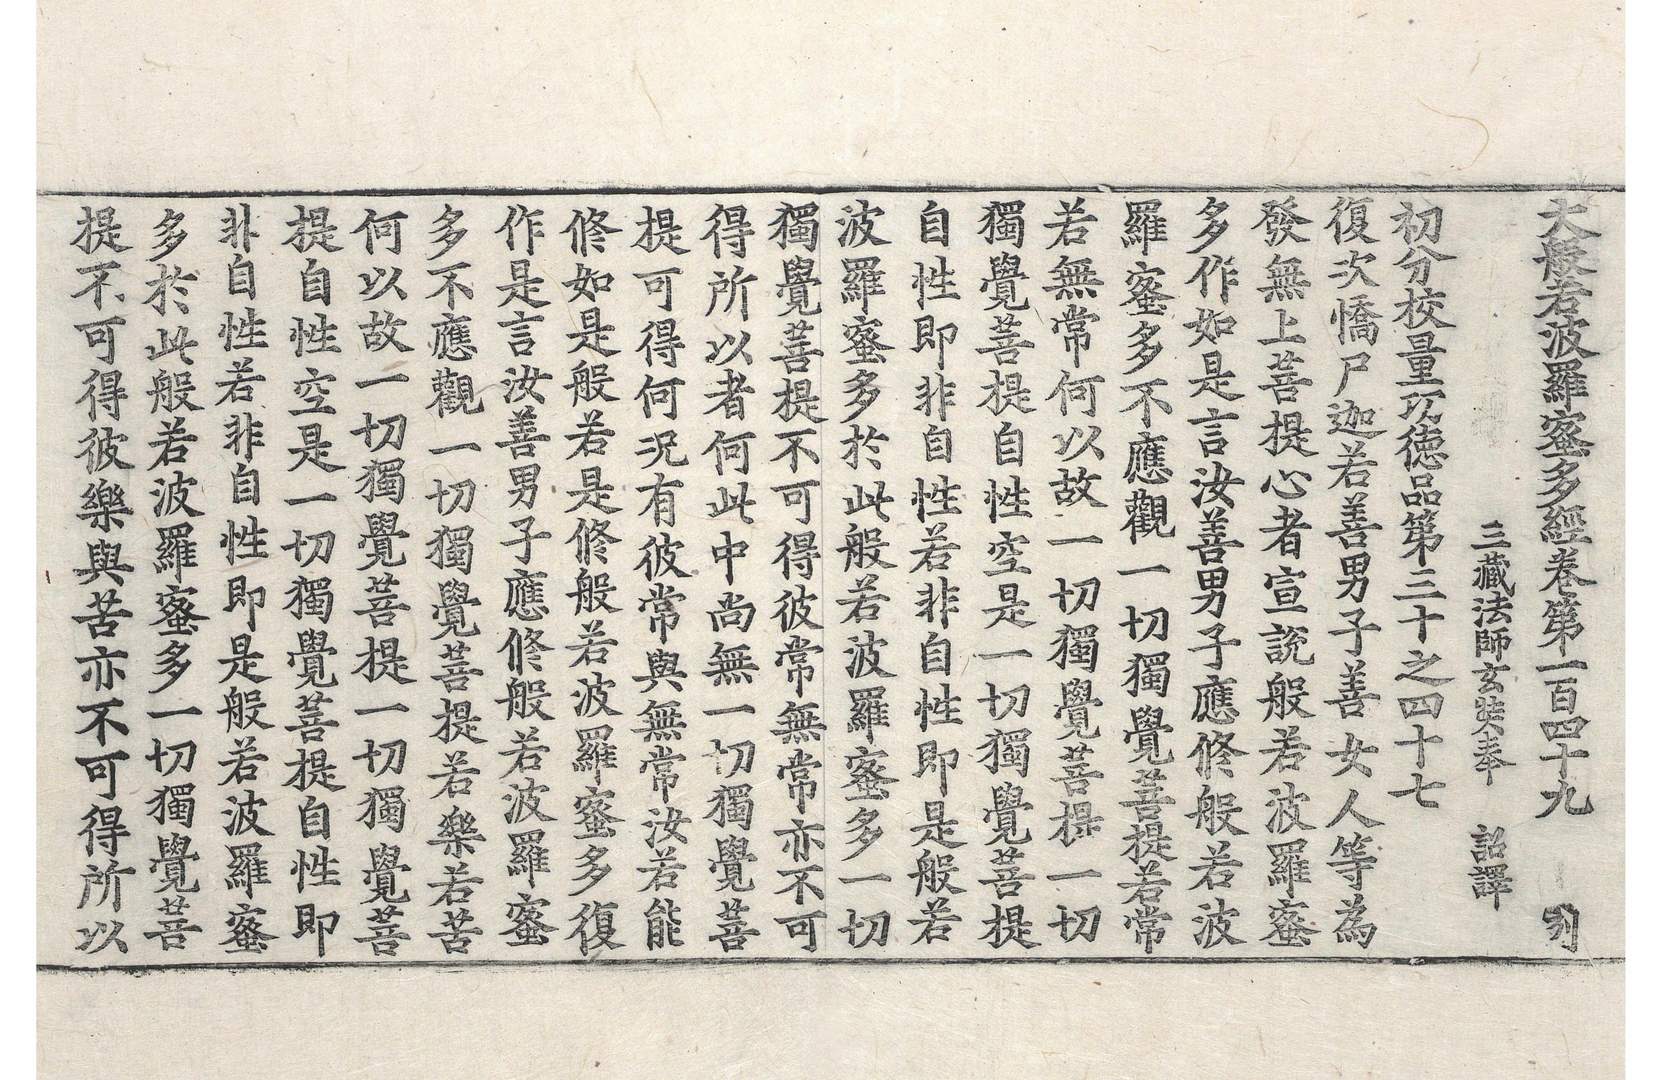 大般若波羅蜜多經卷第一百四十九　列
三藏法師玄奘奉　詔譯
初分校量功德品第三十之四十七
復次憍尸迦若善男子善女人等為
發無上菩提心者宣說般若波羅蜜
多作如是言汝善男子應修般若波
羅蜜多不應觀一切獨覺菩提若常
若無常何以故一切獨覺菩提一切
獨覺菩提自性空是一切獨覺菩提
自性即非自性若非自性即是般若
波羅蜜多於此般若波羅蜜多一切
獨覺菩提不可得彼常無常亦不可
得所以者何此中尚無一切獨覺菩
提可得何況有彼常與無常汝若能
修如是般若是修般若波羅蜜多復
作是言汝善男子應修般若波羅蜜
多不應觀一切獨覺菩提若樂若苦
何以故一切獨覺菩提一切獨覺菩
提自性空是一切獨覺菩提自性即
非自性若非自性即是般若波羅蜜
多於此般若波羅蜜多一切獨覺菩
提不可得彼樂與苦亦不可得所以